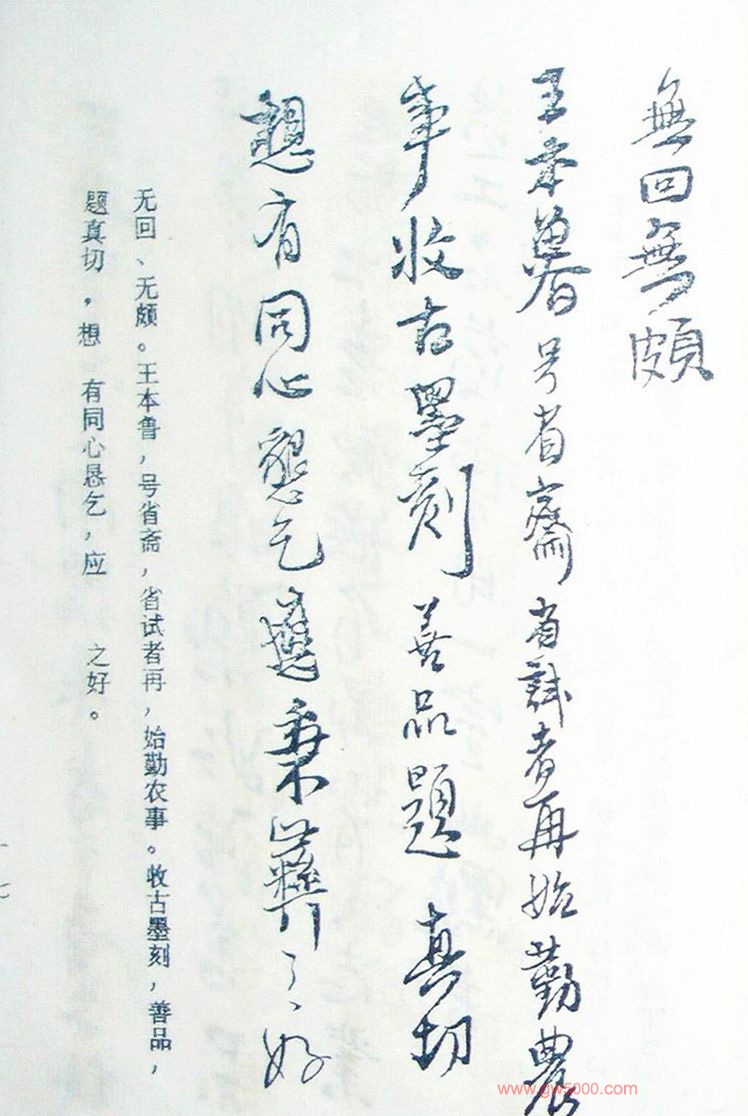 無回無頗
王本魯号省齋省試者再始勤農
事收古墨刻善品題真切
想有同心懇乞應秉彝之好
无回、无颇。王本鲁，号省斋，省试者再，始勤农事。收古墨刻，善品，
题真切，想 有同心恳乞，应 之好。
十七
www.gw5000.com